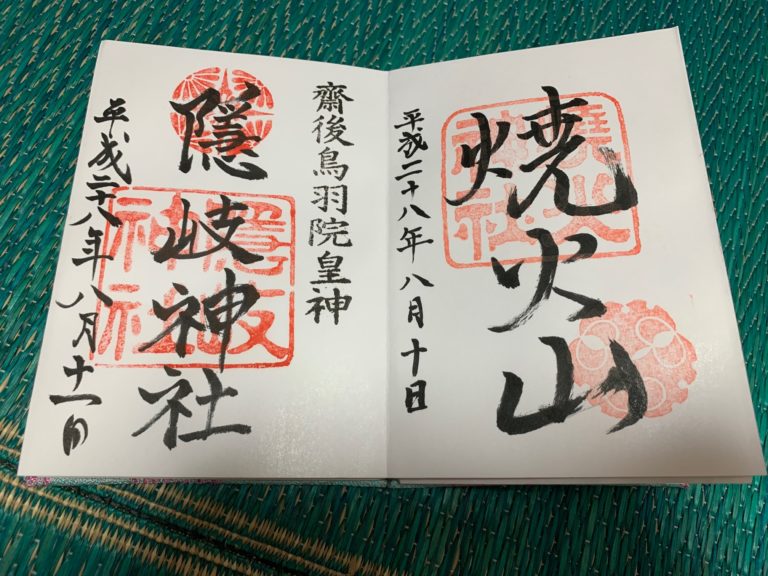 焼火山
平成二十八年八月十日
焼火
神社
齋後鳥羽院皇神
隠岐神社
隠岐
神社
平成二十八年八月十一日